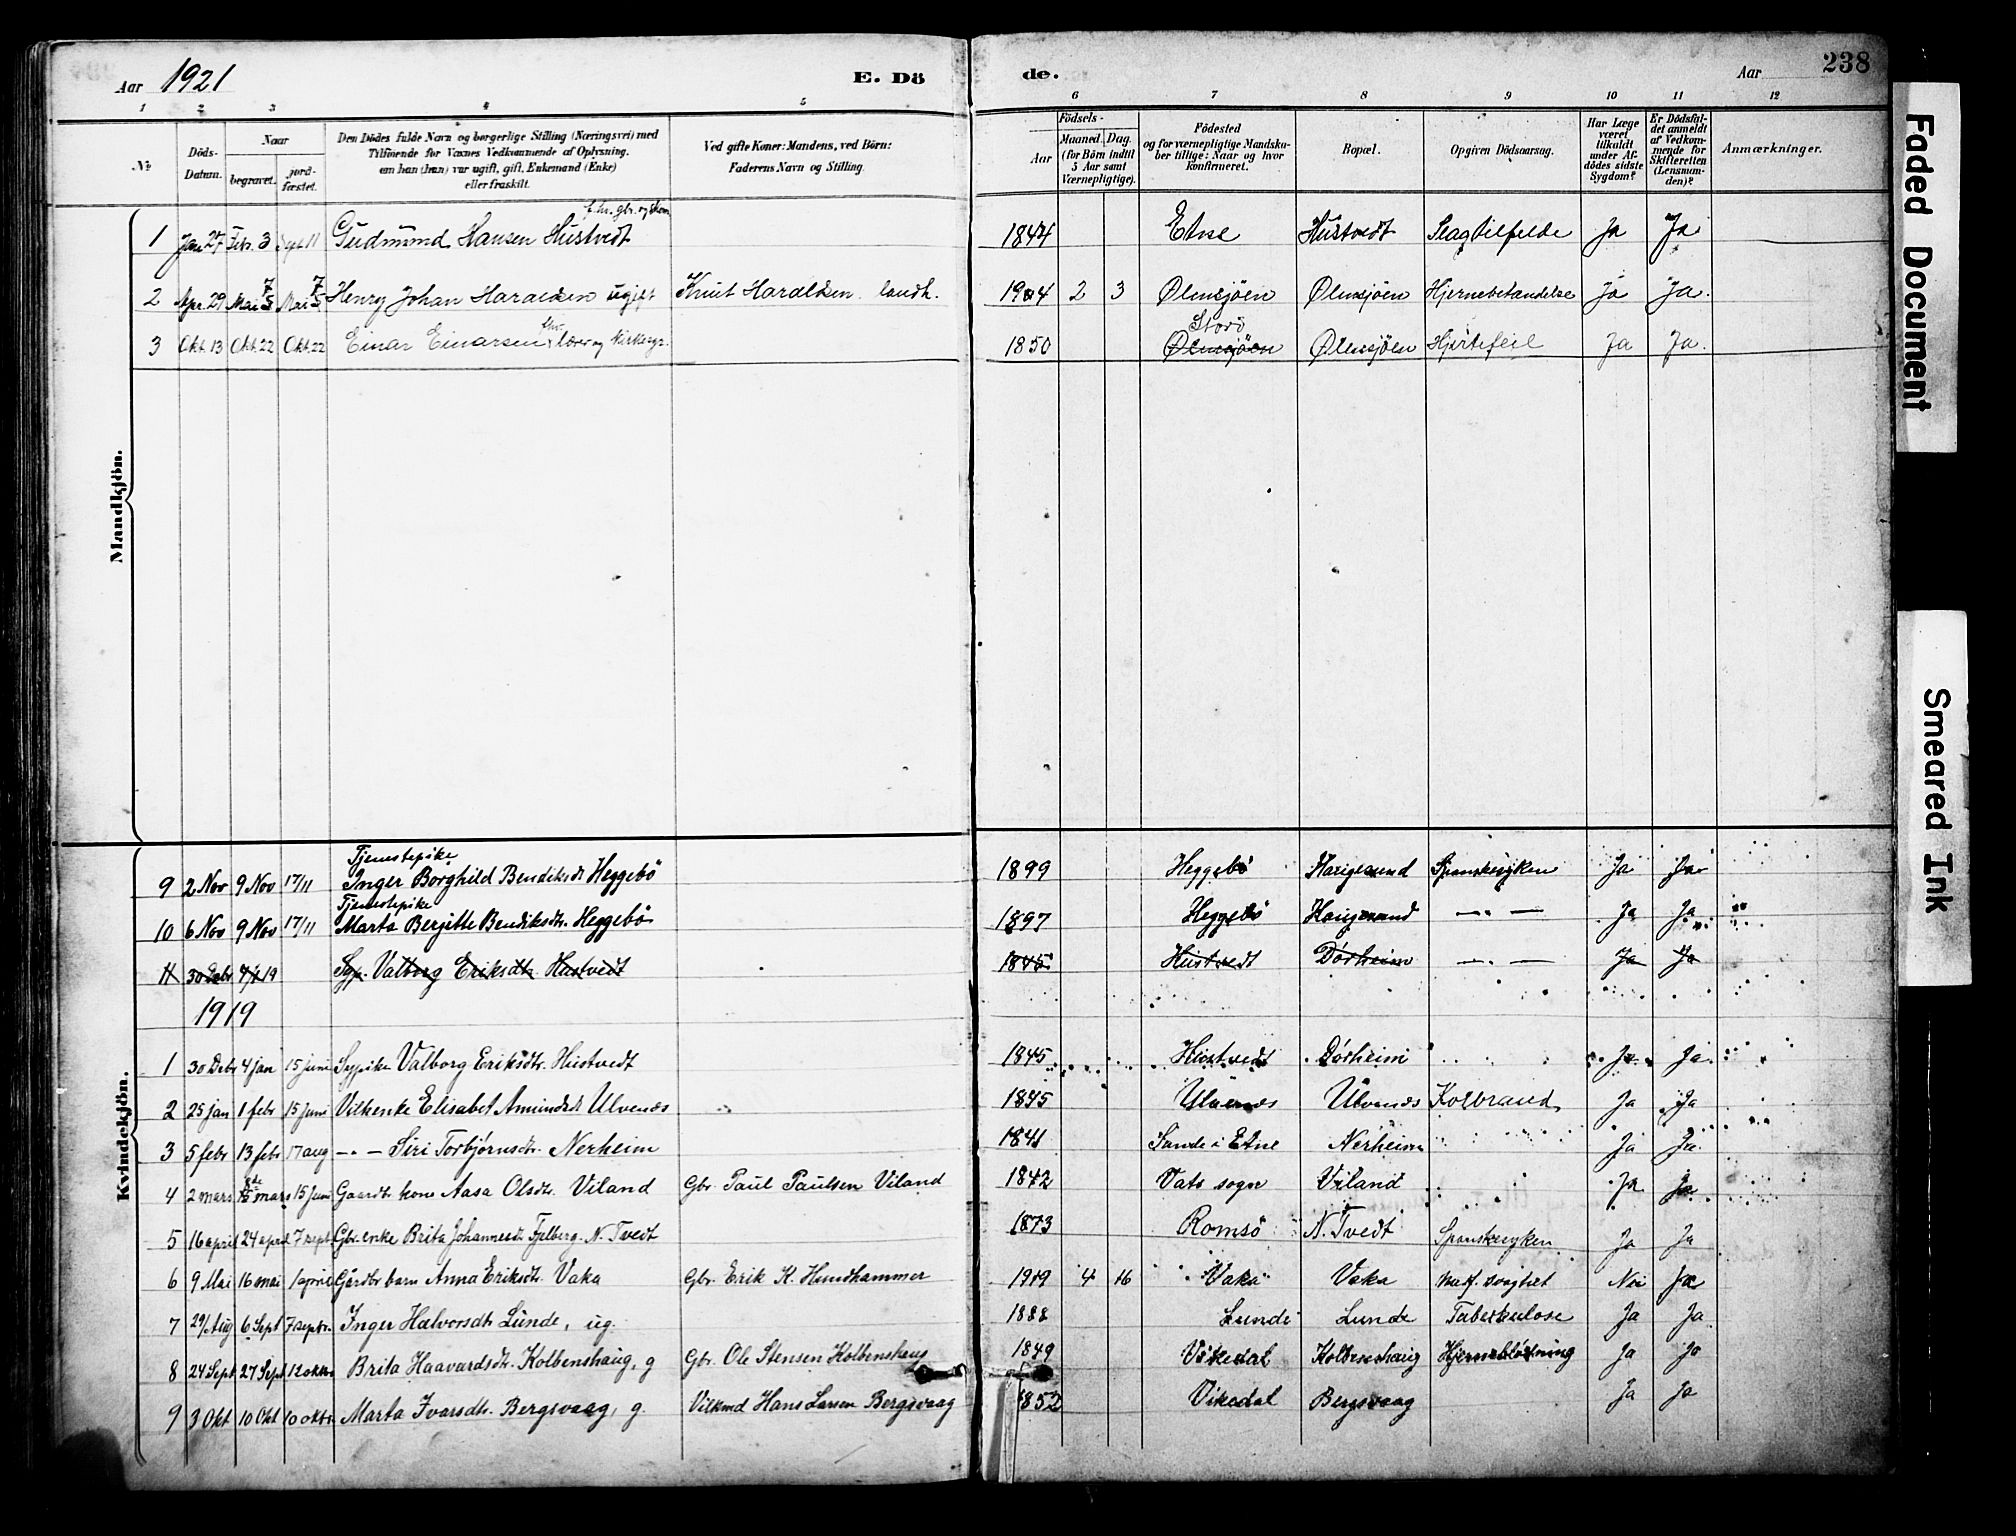 Aar 1921 E. Dö de. Aar 238
1 2 3 4 5 6 7 8 9 10 11 12
№
Döds-Datum.
Naar
begravet.
jord-fæstet.
Den Dödes fulde Navn og borgerlige Stilling (Næringsvei) med
Tilföiende for Voxnes Vedkommende af Oplysning,
om han (hun) var ugift, gift, Enkemand (Enke)
eller fraskilt.
Ved gifte Koner: Mandens, ved Börn:
Faderens Navn og Stilling.
Födsels-
Aar
Maaned. Dag.
(for Börn indtil
5 Aar samt
Værnepligtige).
Födested
og for værnepligtige Mandska-
ber tillige: Naar og hvor
konfirmeret.
Bopæl.
Opgiven Dödsaarsag.
Har Læge
været
tilkaldt
under Af-
dödes sidste
Sygdom?
Er Dödsfal-
det anmeldt
af Vedkom-
mende for
Skifteretten
(Lensman-
den)?
Anmærkninger.
Mandkjön.
1 Jan 27 Febr. 3 Sept 11 Gudmund Hansen Hustvedt 1844 Etne Hustvedt Slagtilfelde Ja Ja
2 Apr. 29 Mai 7 Mai 7 Henry Johan Haraldsen ugift Knut Haraldsen landh. 1904 2 3 Ølensjöen Ølensjöen Hjernebetændelse Ja Ja.
3 Okt. 13 Okt. 22 Okt. 22 Einar Einarsen fhv. lærer og kirkesgr. 1850 Ølensjöen Stord Ølensjöen Hjertefeil Ja Ja.
Kvindekjön.
Tjenestepike
9 2 Nov 9 Nov 17/11 Inger Borghild Bendiksdt Heggebö 1899 Heggebö Haugesund Spanskesyken Ja Ja
Tjenestepike
10 6 Nov 9 Nov 17/11 Marta Berjette Bendiksdtr. Heggebö 1897 Heggebö Haugesund —"— Ja Ja
11 30 Debr 4/1 19 Syp. Valborg Eriksdtr. Hustvedt 1845 Hustvedt Dörheim —"— Ja Ja
1919
1 30 Debr 4 jan 15 juni Sypike Valborg Eriksdtr. Hustvedt 1845 Hustvedt Dörheim Ja Ja
2 25 jan 1 febr 15 juni Vilkenke Elisabet Amundsdt Ulvenæs 1845 Ulvenæs Ulvenæs Kolbrand Ja Ja
3 5 febr 13 febr 17 aug —"— Siri Torbjørnsdtr. Nerheim 1841 Sande i Etne Nerheim Ja Ja
4 2 mars mars 15 juni Gaardbr. kone Aasa Olsdtr. Viland Gbr. Paul Paulsen Viland 1842 Vats sogn Viland Ja Ja
5 16 april 24 april 7 sept Gbr. enke Brita Johannesdt Fjelberg. N. Tvedt 1873 Romsö N. Tvedt Spanskesyken Ja Ja
6 9 Mai 16 mai 1 april Gårdbr barn Anna Eriksdtr. Vaka Gbr. Erik K. Hundhammer 1919 4 16 Vaka Vaka Matf. svaghet Nei Ja
7 29/Aug 6 Sept 7 septbr. Inger Halvorsdtr Lunde, ug. 1888 Lunde Lunde Tuberkulose Ja Ja
8 24 Sept 27 Sept 12 oktbr Brita Haavardsdtr. Kolbenshaug, g Gbr. Ole Stensen Kolbenshaug 1849 Vikedal Kolbenshaug Hjerneblödning Ja Ja
9 3 Okt 10 Okt 10 oktbr Marta Ivarsdtr. Bergsvaag, g. Vilkmd Hans Larsen Bergsvaag 1852 Vikedal Bergsvaag Ja Ja
Faded Document
Smeared Ink